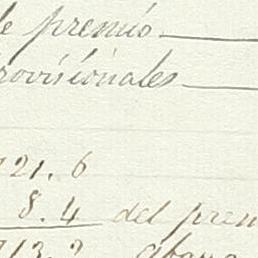 de premio
provisionales
721. 6
8. 4 del prem
713. 2 abona